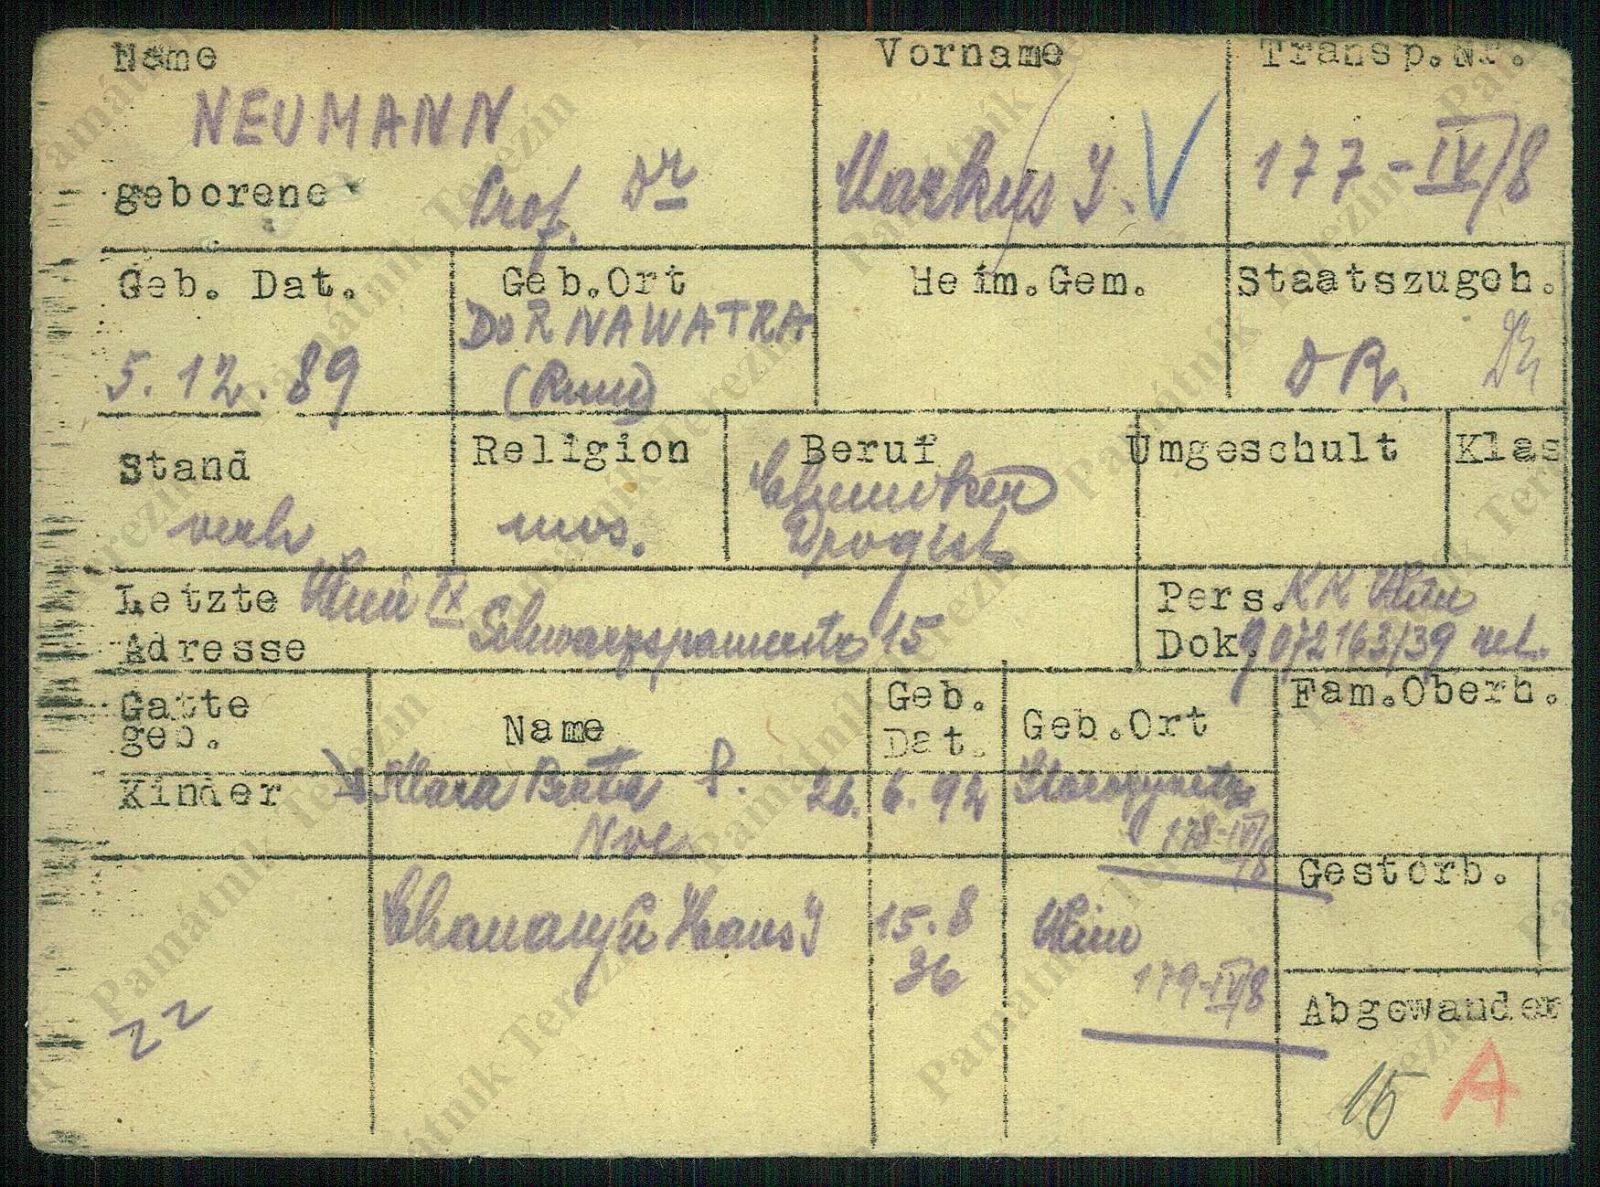 Name Vorname Transp.Nr.
NEUMANN Markus I. V 177-IV/8
geborene Prof. Dr
Geb. Dat. Geb.Ort Heim.Gem. Staatszugeh.
5.12.89 DORNAWATRA DR.
(Rum)
Stand Religion Beruf Umgeschult Klas
verh mos. Chemiker
Drogist
Letzte Adresse Wien IX Schwarzspanierstr 15
Pers. Dok. KK Wien
9072163/39
Gatte geb. Name Geb. Dat. Geb.Ort Fam.Oberh.
Kinder Klara Beate S. 26. 6. 92
178-IV/8
Gestorb.
Hans I 15.8 36 Wien
179-IV/8
Abgewander
ZZ
15 A
Památník Terezín